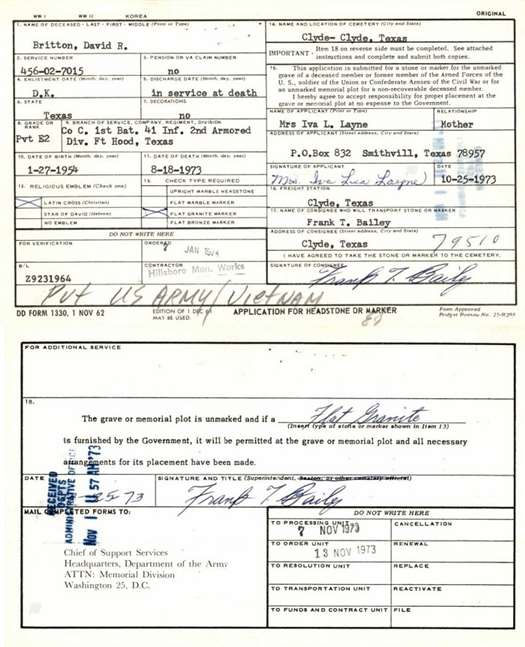 WW I WW II KOREA ORIGINAL
1. NAME OF DECEASED - LAST - FIRST - MIDDLE (Print or Type)
Britton, David R.
14. NAME AND LOCATION OF CEMETERY (City and State)
Clyde- Clyde, Texas
IMPORTANT - Item 18 on reverse side must be completed. See attached
instructions and complete and submit both copies.
2. SERVICE NUMBER
456-02-7015
3. PENSION OR VA CLAIM NUMBER
no
4. ENLISTMENT DATE (Month, day, year)
D.K.
5. DISCHARGE DATE (Month, day, year)
in service at death
6. STATE
Texas
7. DECORATIONS
no
15. This application is submitted for a stone or marker for the unmarked
grave of a deceased member or former member of the Armed Forces of the
U. S., soldier of the Union or Confederate Armies of the Civil War or for
an unmarked memorial plot for a non-recoverable deceased member.
I hereby agree to accept responsibility for proper placement at the
grave or memorial plot at no expense to the Government.
8. GRADE OR RANK
Pvt E2
9. BRANCH OF SERVICE, COMPANY, REGIMENT, DIVISION
Co C. 1st Bat. 41 Inf. 2nd Armored
Div. Ft Hood, Texas
NAME OF APPLICANT (Print or Type)
Mrs Iva L. Layne
RELATIONSHIP
Mother
ADDRESS OF APPLICANT (Street address, City and State)
P.O.Box 832 Smithvill, Texas 78957
10. DATE OF BIRTH (Month, day, year)
1-27-1954
11. DATE OF DEATH (Month, day, year)
8-18-1973
SIGNATURE OF APPLICANT
Mrs. Iva Lea Layne
DATE
10-25-1973
12. RELIGIOUS EMBLEM (Check one)
LATIN CROSS (Christian)
STAR OF DAVID (Hebrew)
NO EMBLEM
13. CHECK TYPE REQUIRED
UPRIGHT MARBLE HEADSTONE
FLAT MARBLE MARKER
FLAT GRANITE MARKER
FLAT BRONZE MARKER
16. FREIGHT STATION
Clyde, Texas
17. NAME OF CONSIGNEE WHO WILL TRANSPORT STONE OR MARKER
Frank T. Bailey
ADDRESS OF CONSIGNEE (Street address, City and State)
Clyde, Texas 79510
DO NOT WRITE HERE
FOR VERIFICATION
ORDERED
JAN 1974
I HAVE AGREED TO TAKE THE STONE OR MARKER TO THE CEMETERY.
B/L
Z9231964
CONTRACTOR
Hillsboro Mon. Works
SIGNATURE OF CONSIGNEE
Frank T. Baily
Pvt US ARMY/VIETNAM
DD FORM 1330, 1 NOV 62
EDITION OF 1 DEC 61
MAY BE USED.
APPLICATION FOR HEADSTONE OR MARKER
Form Approved
FOR ADDITIONAL SERVICE
18.
The grave or memorial plot is unmarked and if a Flat Granite
(Insert type of stone or marker shown in Item 13)
is furnished by the Government, it will be permitted at the grave or memorial plot and all necessary
arrangements for its placement have been made.
DATE
SIGNATURE AND TITLE (Superintendent, Sexton, or other cemetery official)
Frank T. Baily
RECEIVED
ADMINISTRATIVE
Nov 1 11 57 AM '73
MAIL COMPLETED FORMS TO:
Chief of Support Services
Headquarters, Department of the Army
ATTN: Memorial Division
Washington 25, D.C.
DO NOT WRITE HERE
TO PROCESSING UNIT
7 NOV 1973
CANCELLATION
TO ORDER UNIT
13 NOV 1973
RENEWAL
TO RESOLUTION UNIT
REPLACE
TO TRANSPORTATION UNIT
REACTIVATE
TO FUNDS AND CONTRACT UNIT
FILE